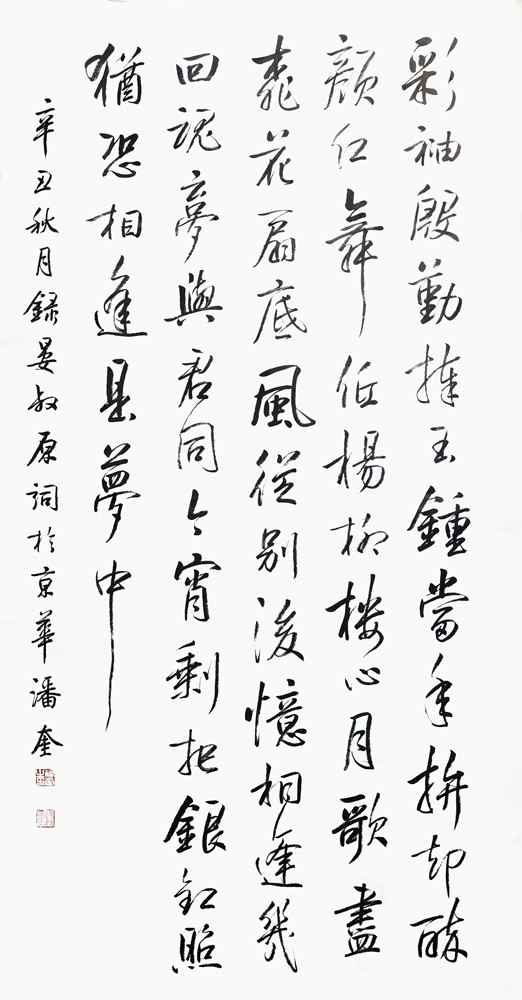 彩袖殷勤捧玉鍾當年拚却醉
顏紅舞低楊柳樓心月歌盡
桃花扇底風從別後憶相逢幾
回魂夢與君同今宵剩把銀釭照
猶恐相逢是夢中
辛丑秋月録晏叔原詞於京華潘奎